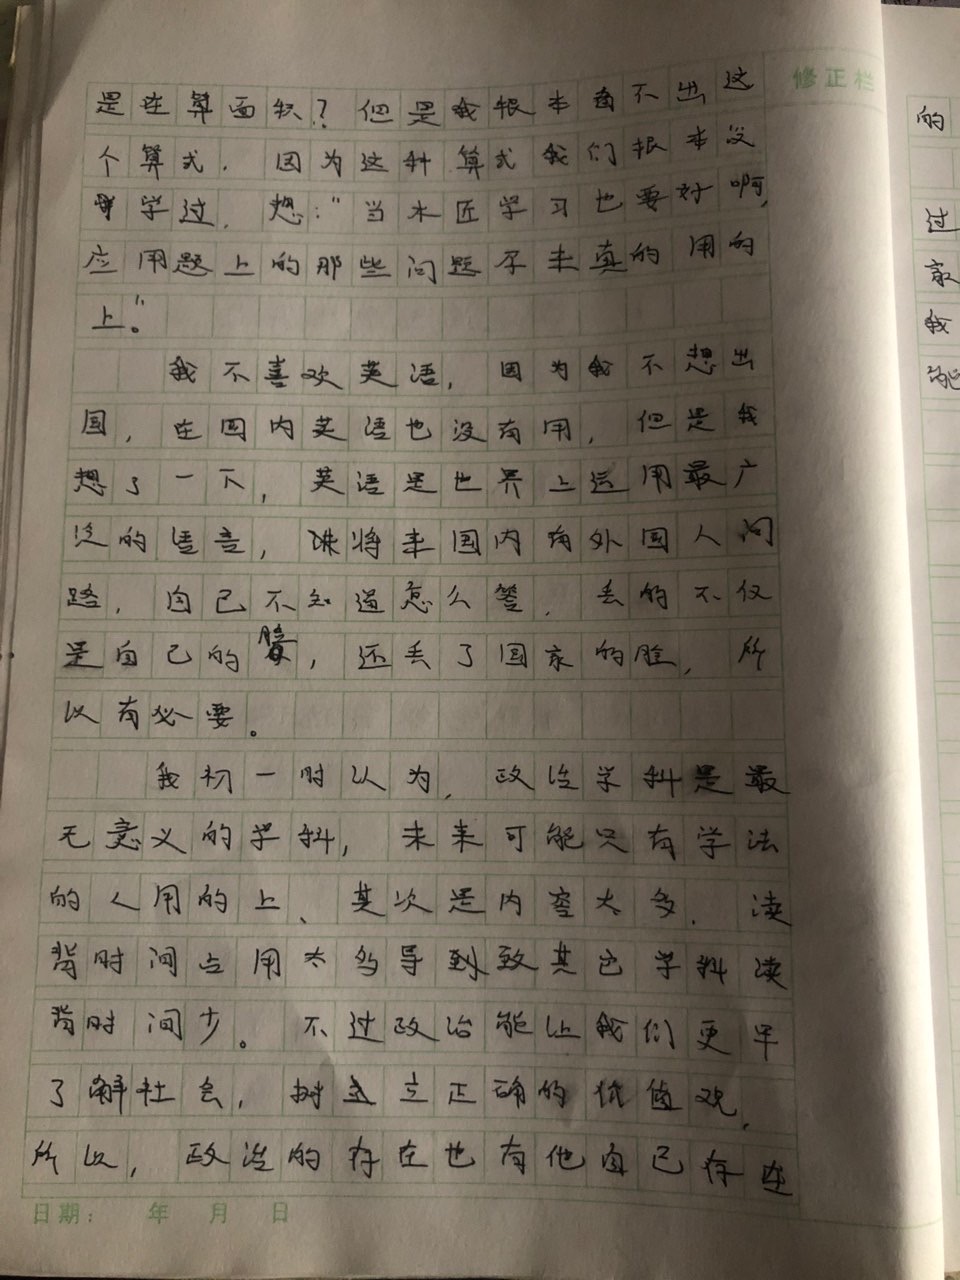 修正栏
是在算面积?但是我根本看不出这
个算式.因为这种算式我们根本没
学过,想:"当木匠学习也要好啊,
应用题上的那些问题原来真的用的
上"。
我不喜欢英语,因为我不想出
国,在国内英语也没有用,但是我
想了一下,英语是世界上运用最广
泛的语言,将来国内有外国人问
路,自己不知道怎么答,丢的不仅
是自己的脸,还丢了国家的脸,所
以有必要。
我初一时认为,政治学科是最
无意义的学科,未来可能只有学法
的人用的上、其次是内容太多,读
背时间占用太多导到致其它学科读
背时间少。不过政治能让我们更早
了解社会,树立正确的价值观,
所以,政治的存在也有他自己存在
日期: 年 月 日
的
过
家
我
能